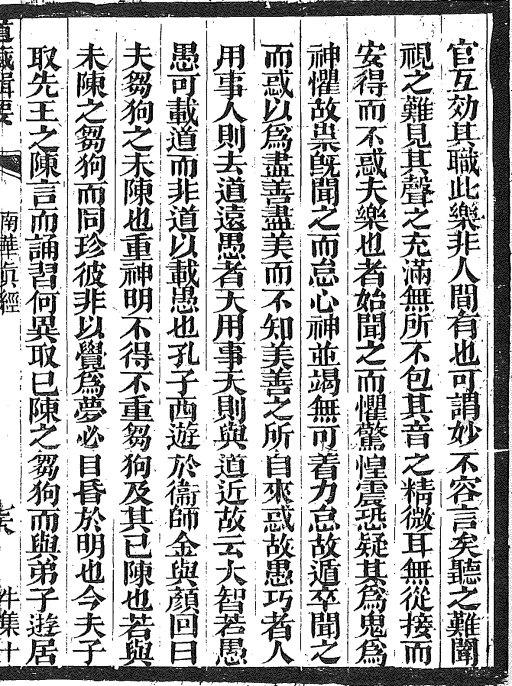 官互効其職此樂非人間有也可謂妙不容言矣聽之難聞
視之難見其聲之充滿無所不包其音之精微耳無從接而
安得而不惑夫樂也者始聞之而懼驚惶震恐疑其爲鬼爲
神懼故祟旣聞之而怠心神並竭無可着力怠故遁卒聞之
而惑以爲盡善盡美而不知美善之所自來惑故愚巧者人
用事人則去道遠愚者天用事天則與道近故云大智若愚
愚可載道而非道以載愚也孔子西遊於衞師金與顏回曰
夫芻狗之未陳也重神明不得不重芻狗及其已陳也若與
未陳之芻狗而同珍彼非以覺爲夢必目昏於明也今夫子
取先王之陳言而誦習何異取已陳之芻狗而與弟子遊居
道藏輯要
南華眞經